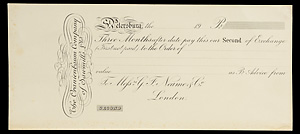 The Orenstein Company
of Sawmills, Ltd.
Petersburg, the 19 R
Three Months after date pay this our Second of Exchange
First not paid, to the Order of
value as P Advice from
To Messrs. G. F. Neame & Co.
London.
SECOND